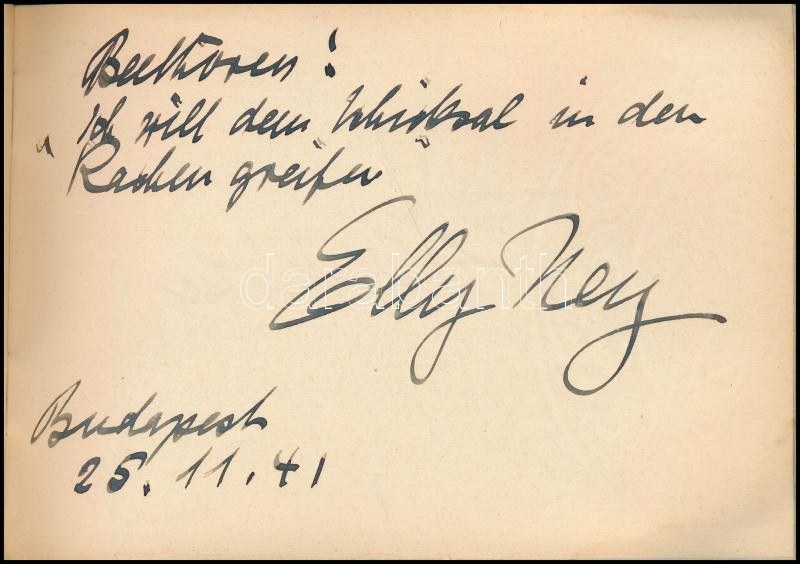 Beethoven!
"Ich will dem Schicksal in den
Rachen greifen"
Elly Ney
darabanth
Budapest
25. 11. 41